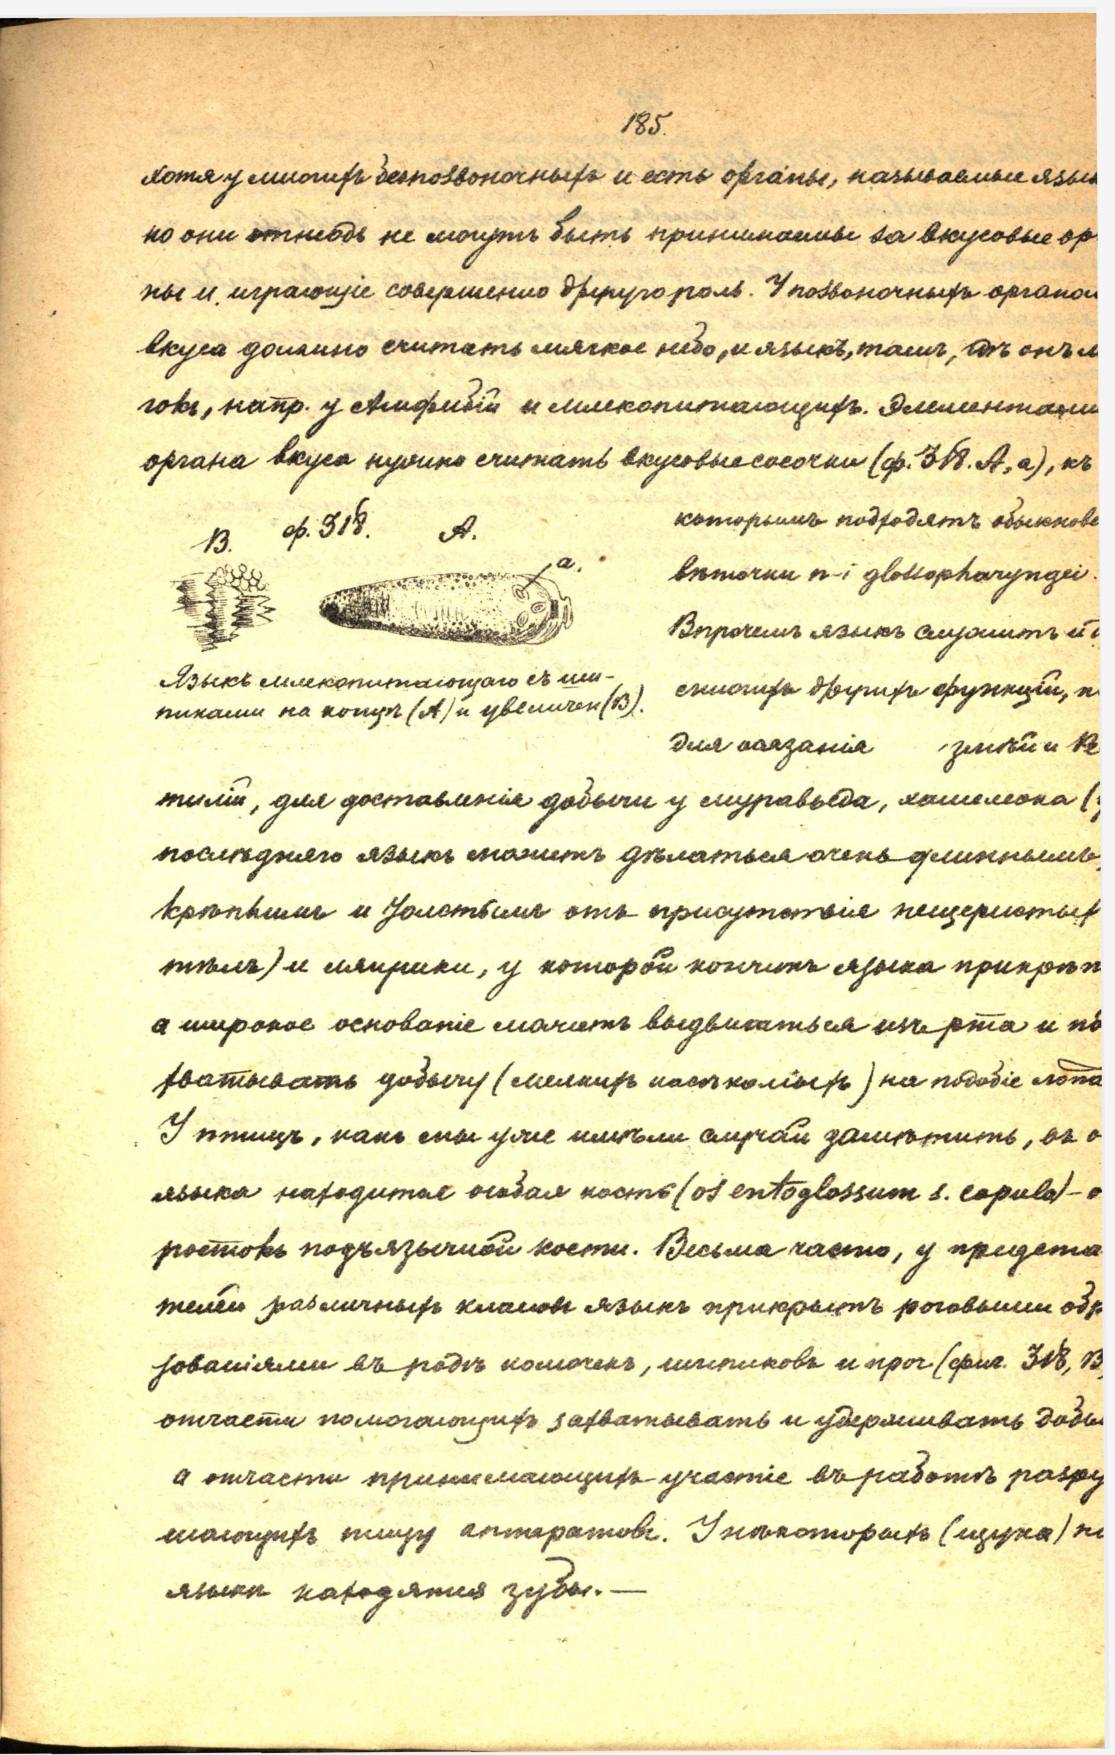 185.
хотя у многихъ безпозвоночныхъ и есть органы, называемые язык
но они отнюдь не могутъ быть принимаемы за вкусовые ор
ны и играющіе совершенно другую роль. У позвоночныхъ органом
вкуса должно считать мягкое небо, и языкъ, тамъ, гдѣ онъ м
гокъ, напр. у Амфибій и млекопитающихъ. Элементами
органа вкуса нужно считать вкусовые сосочки (ф. 318. А, а), къ
которымъ подходятъ обыкнове
вѣточки n-i glossopharyngei.
Впрочемъ языкъ служитъ и д
многихъ другихъ функцій, н
для осязанія змѣй и Re
В. ф. 318. А.
а.
Языкъ млекопитающаго съ ши-
пиками на концѣ (А) и увеличен (В).
тилій, для доставленія добычи у муравьѣда, хамелеона (у
послѣдняго языкъ можетъ дѣлаться очень длиннымъ,
крѣпкимъ и толстымъ отъ присутствія пещеристых
тѣлъ) и лягушки, у которой кончикъ языка прикрѣп
а широкое основаніе можетъ выдвигаться изъ рта и по
хватывать добычу (мелкихъ насѣкомыхъ) на подобіе лопа
У птицъ, какъ мы уже имѣли случай замѣтить, въ о
языка находится особая кость (os entoglossum s. copula) - о
ростокъ подъязычной кости. Весьма часто, у предста
телей различныхъ классовъ языкъ прикрытъ роговыми обр
зованіями въ родѣ колючекъ, шипиковъ и проч (фиг. 318, В,
отчасти помогающихъ захватывать и удерживать добы
а отчасти принимающихъ участіе въ работѣ разру
шающихъ пищу аппаратовъ. У нѣкоторыхъ (щука) на
языкѣ находятся зубы. —